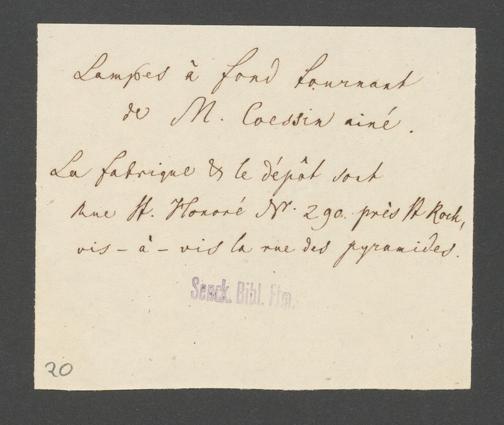 Lampes à fond tournant
de M. Coessin ainé.
La fabrique & le dépôt sont
rue St. Honoré No. 290. près St Roch,
vis-à-vis la rue des pyramides.
Senck. Bibl. Ffm.
20